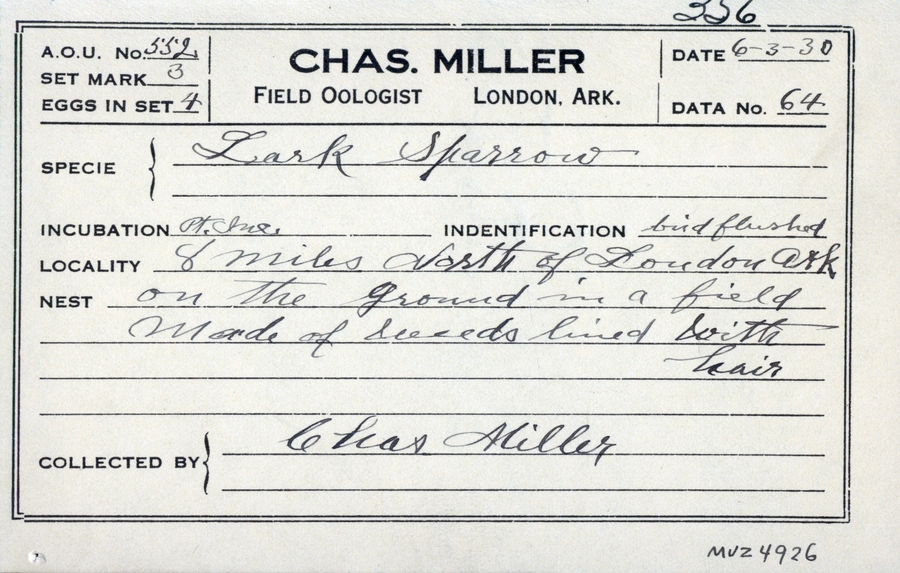 336
A.O.U. No. 552
CHAS. MILLER
DATE 6-3-30
SET MARK 3
EGGS IN SET 4
FIELD OOLOGIST LONDON, ARK.
DATA No. 64
SPECIE Lark Sparrow
INCUBATION Pt. Inc. INDENTIFICATION bird flushed
LOCALITY 8 miles North of London Ark
NEST on the ground in a field
Made of weeds lined with
hair
Chas Miller
COLLECTED BY
MVZ 4926